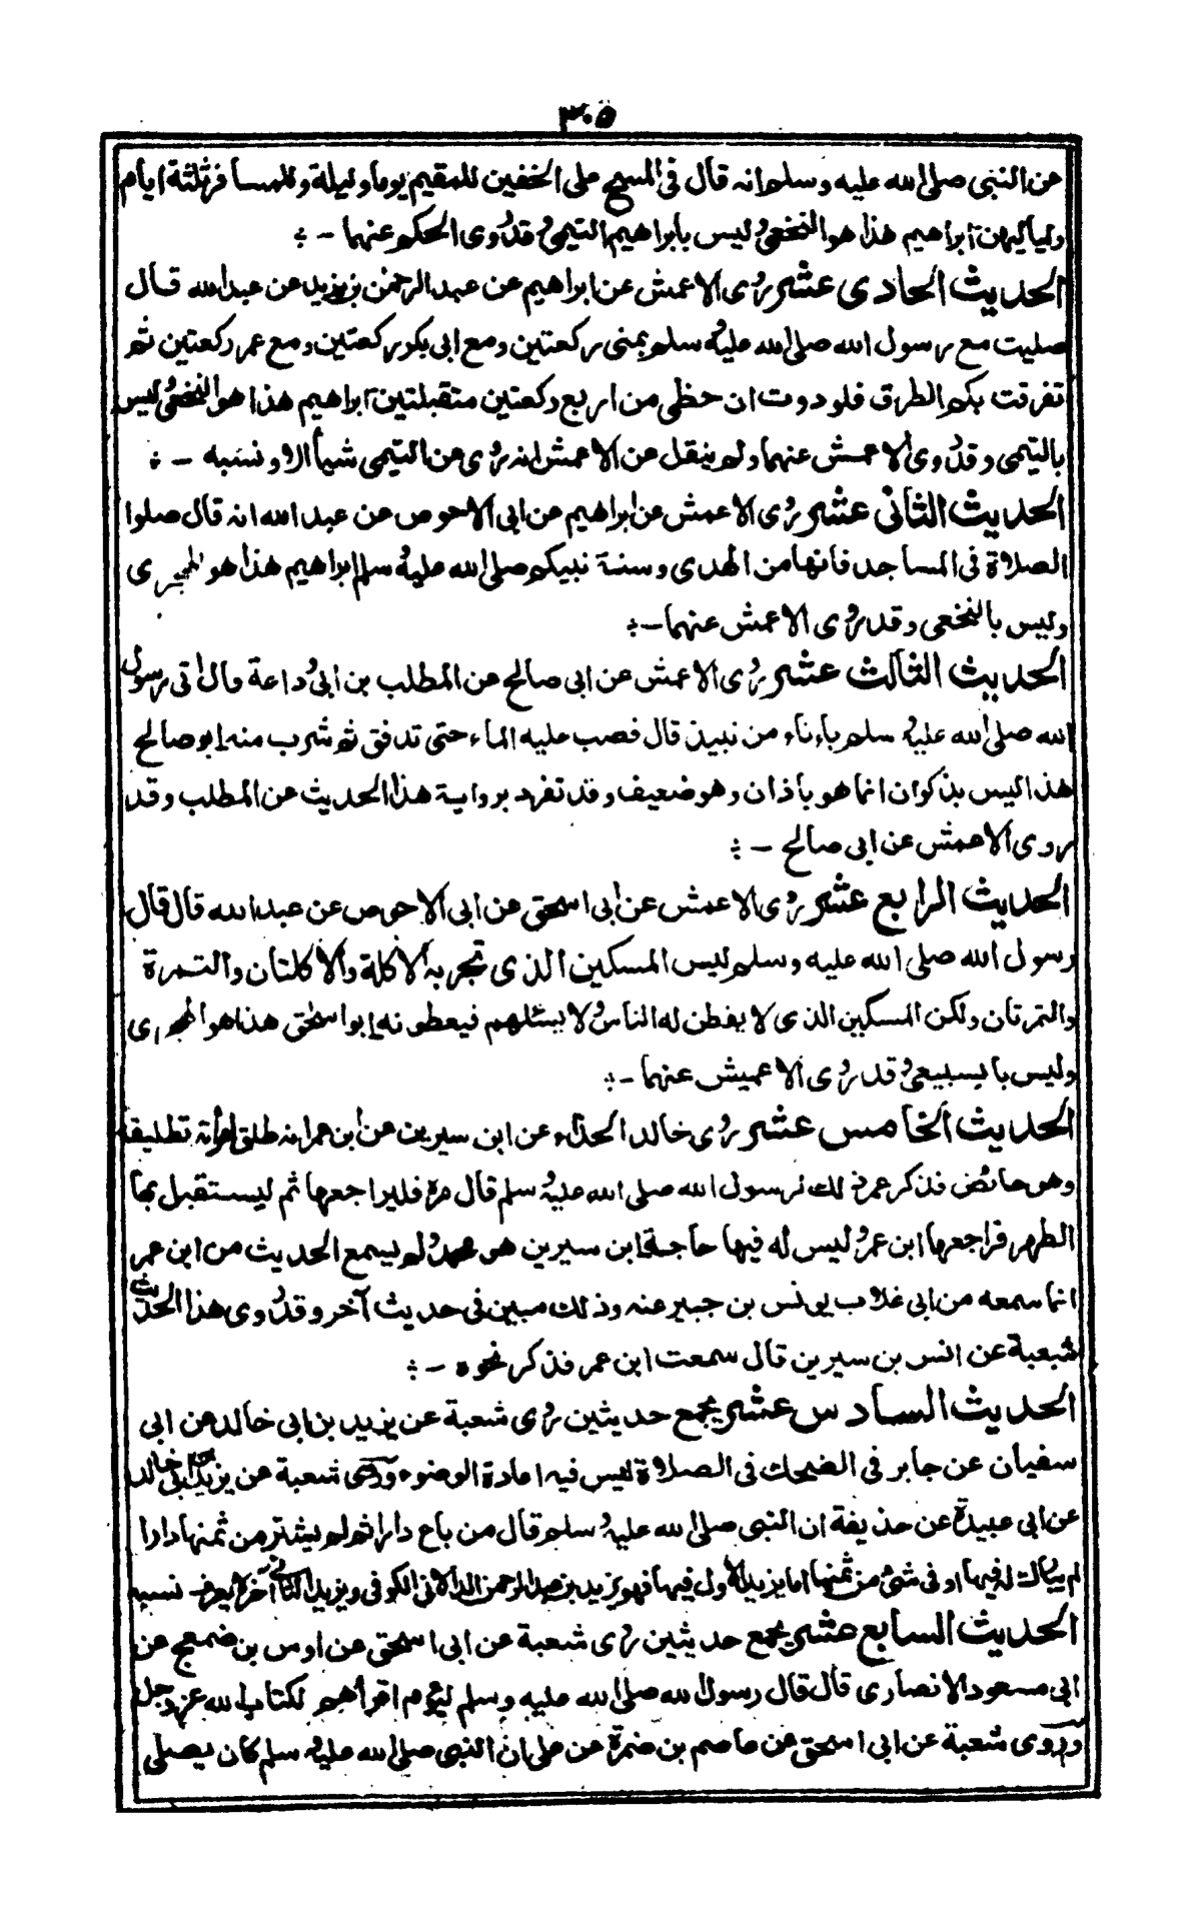 ٣٠٥
عن النبى صلى الله عليه وسلم انه قال فى المسح على الخفين للمقيم يوما وليلة وللمسافر ثلثة ايام
ولياليهن ابراهيم هذا هو النخعى وليس بابراهيم التيمى وقد روى الحكم عنهما - ؞
الحديث الحادى عشر روى الاعمش عن ابراهيم عن عبد الرحمن بن يزيد عن عبد الله قال
صليت مع رسول الله صلى الله عليه وسلم بمنى ركعتين ومع ابى بكر ركعتين ومع عمر ركعتين ثم
تفرقت بكم الطرق فلوددت ان حظى من اربع ركعتين متقبلتين ابراهيم هذا هو النخعى وليس
بالتيمى وقد روى الاعمش عنهما ولم ينقل عن الاعمش انه روى عن التيمى شيأ الا ونسبه - ؞
الحديث الثانى عشر روى الاعمش عن ابراهيم عن ابى الاحوص عن عبد الله انه قال صلوا
الصلاة فى المساجد فانها من الهدى وسنة نبيكم صلى الله عليه وسلم ابراهيم هذا هو الهجرى
وليس بالنخعى وقد روى الاعمش عنهما - ؞
الحديث الثالث عشر روى الاعمش عن ابى صالح عن المطلب بن ابى وداعة قال اتى رسول
الله صلى الله عليه وسلم باناء من نبيذ قال فصب عليه الماء حتى تدفق ثم شرب منه ابو صالح
هذا ليس بذكوان انما هو باذان وهو ضعيف وقد تفرد برواية هذا الحديث عن المطلب وقد
روى الاعمش عن ابى صالح - ؞
الحديث الرابع عشر روى الاعمش عن ابى اسحق عن ابى الاحوص عن عبد الله قال قال
رسول الله صلى الله عليه وسلم ليس المسكين الذى تجربه الاكلة والاكلتان والتمرة
والتمرتان ولكن المسكين الذى لا يفطن له الناس ولا يسئلهم فيعطونه ابو اسحق هذا هو الهجرى
وليس بالسبيعى وقد روى الاعميش عنهما - ؞
الحديث الخامس عشر روى خالد الحذاء عن ابن سيرين عن ابن عمر انه طلق امرأته تطليقة
وهو حائض فذكر عمر ذلك لرسول الله صلى الله عليه وسلم قال مره فليراجعها ثم ليستقبل بها
الطهر فراجعها ابن عمر وليس له فيها حاجة ابن سيرين هو محمد ولم يسمع الحديث من ابن عمر
انما سمعه من ابى غلاب يونس بن جبير عنه وذلك مبين فى حديث آخر وقد روى هذا الحديث
شعبة عن انس بن سيرين قال سمعت ابن عمر فذكر نحوه - ؞
الحديث السادس عشر يجمع حديثين روى شعبة عن يزيد بن ابى خالد عن ابى
سفيان عن جابر فى الضحك فى الصلاة ليس فيه اعادة الوضوء وروى شعبة عن يزيد بن ابى خالد
عن ابى عبيدة عن حذيفة ان النبى صلى الله عليه وسلم قال من باع دارا ثم لم يشتر من ثمنها دارا
لم يبارك له فيها او فى شئ من ثمنها اما يزيد الاول فيها فهو يزيد بن عبد الرحمن الدالانى الكوفى ويزيد الثانى آخر لا يعرف نسبه
الحديث السابع عشر يجمع حديثين روى شعبة عن ابى اسحق عن اوس بن ضمعج عن
ابى مسعود الانصارى قال قال رسول الله صلى الله عليه وسلم ليؤم اقرأهم لكتاب الله عز وجل
وروى شعبة عن ابى اسحق عن عاصم بن ضمرة عن على ان النبى صلى الله عليه وسلم كان يصلى